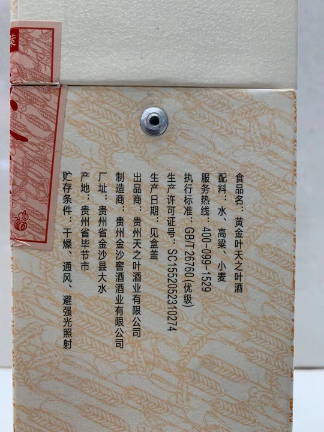 食品名：黄金叶天之叶酒
配料：水、高粱、小麦
服务热线：400-099-1529
执行标准：GB/T26760(优级)
生产许可证号：SC1552052310274
生产日期：见盒盖
出品商：贵州天之叶酒业有限公司
制造商：贵州金沙窖酒酒业有限公司
厂址：贵州省金沙县大水
产地：贵州省毕节市
贮存条件：干燥、通风、避强光照射